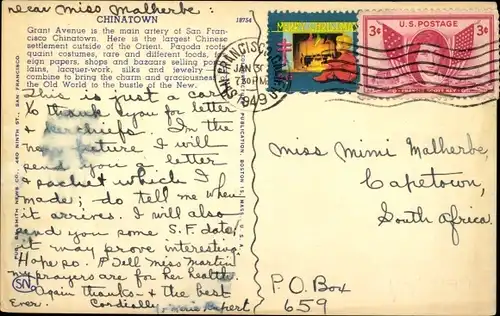 Dear Miss Malherbe:
CHINATOWN
18754
Grant Avenue is the main artery of San Fran-
cisco Chinatown. Here is the largest Chinese
settlement outside of the Orient. Pagoda roofs,
quaint costumes, rare and different foods, for-
eign papers, shops and bazaars selling porce-
lains, lacquer-work, silks and jewelry—
combine to bring the charm and graciousness of
the Old World to the bustle of the New.
This is just a card
to thank you for letter
& kerchiefs. In the
near future I will
send you a letter
& sachet which I
made; do tell me when
it arrives. I will also
send you some S.F. data;
it may prove interesting.
Hope so. Tell Miss Martin
my prayers are for her health.
Again thanks & the best
Ever. Cordially,
Rupert
SN
SMITH NEWS CO., 460 NINTH ST., SAN FRANCISCO
PUBLICATION, BOSTON 15, MASS., U. S. A.
SAN FRANCISCO, CALIF.
JAN 3
7 30 PM
1949
U.S. POSTAGE
3¢ 3¢
Miss Mimi Malherbe,
Capetown,
South Africa.
P.O. Box
659